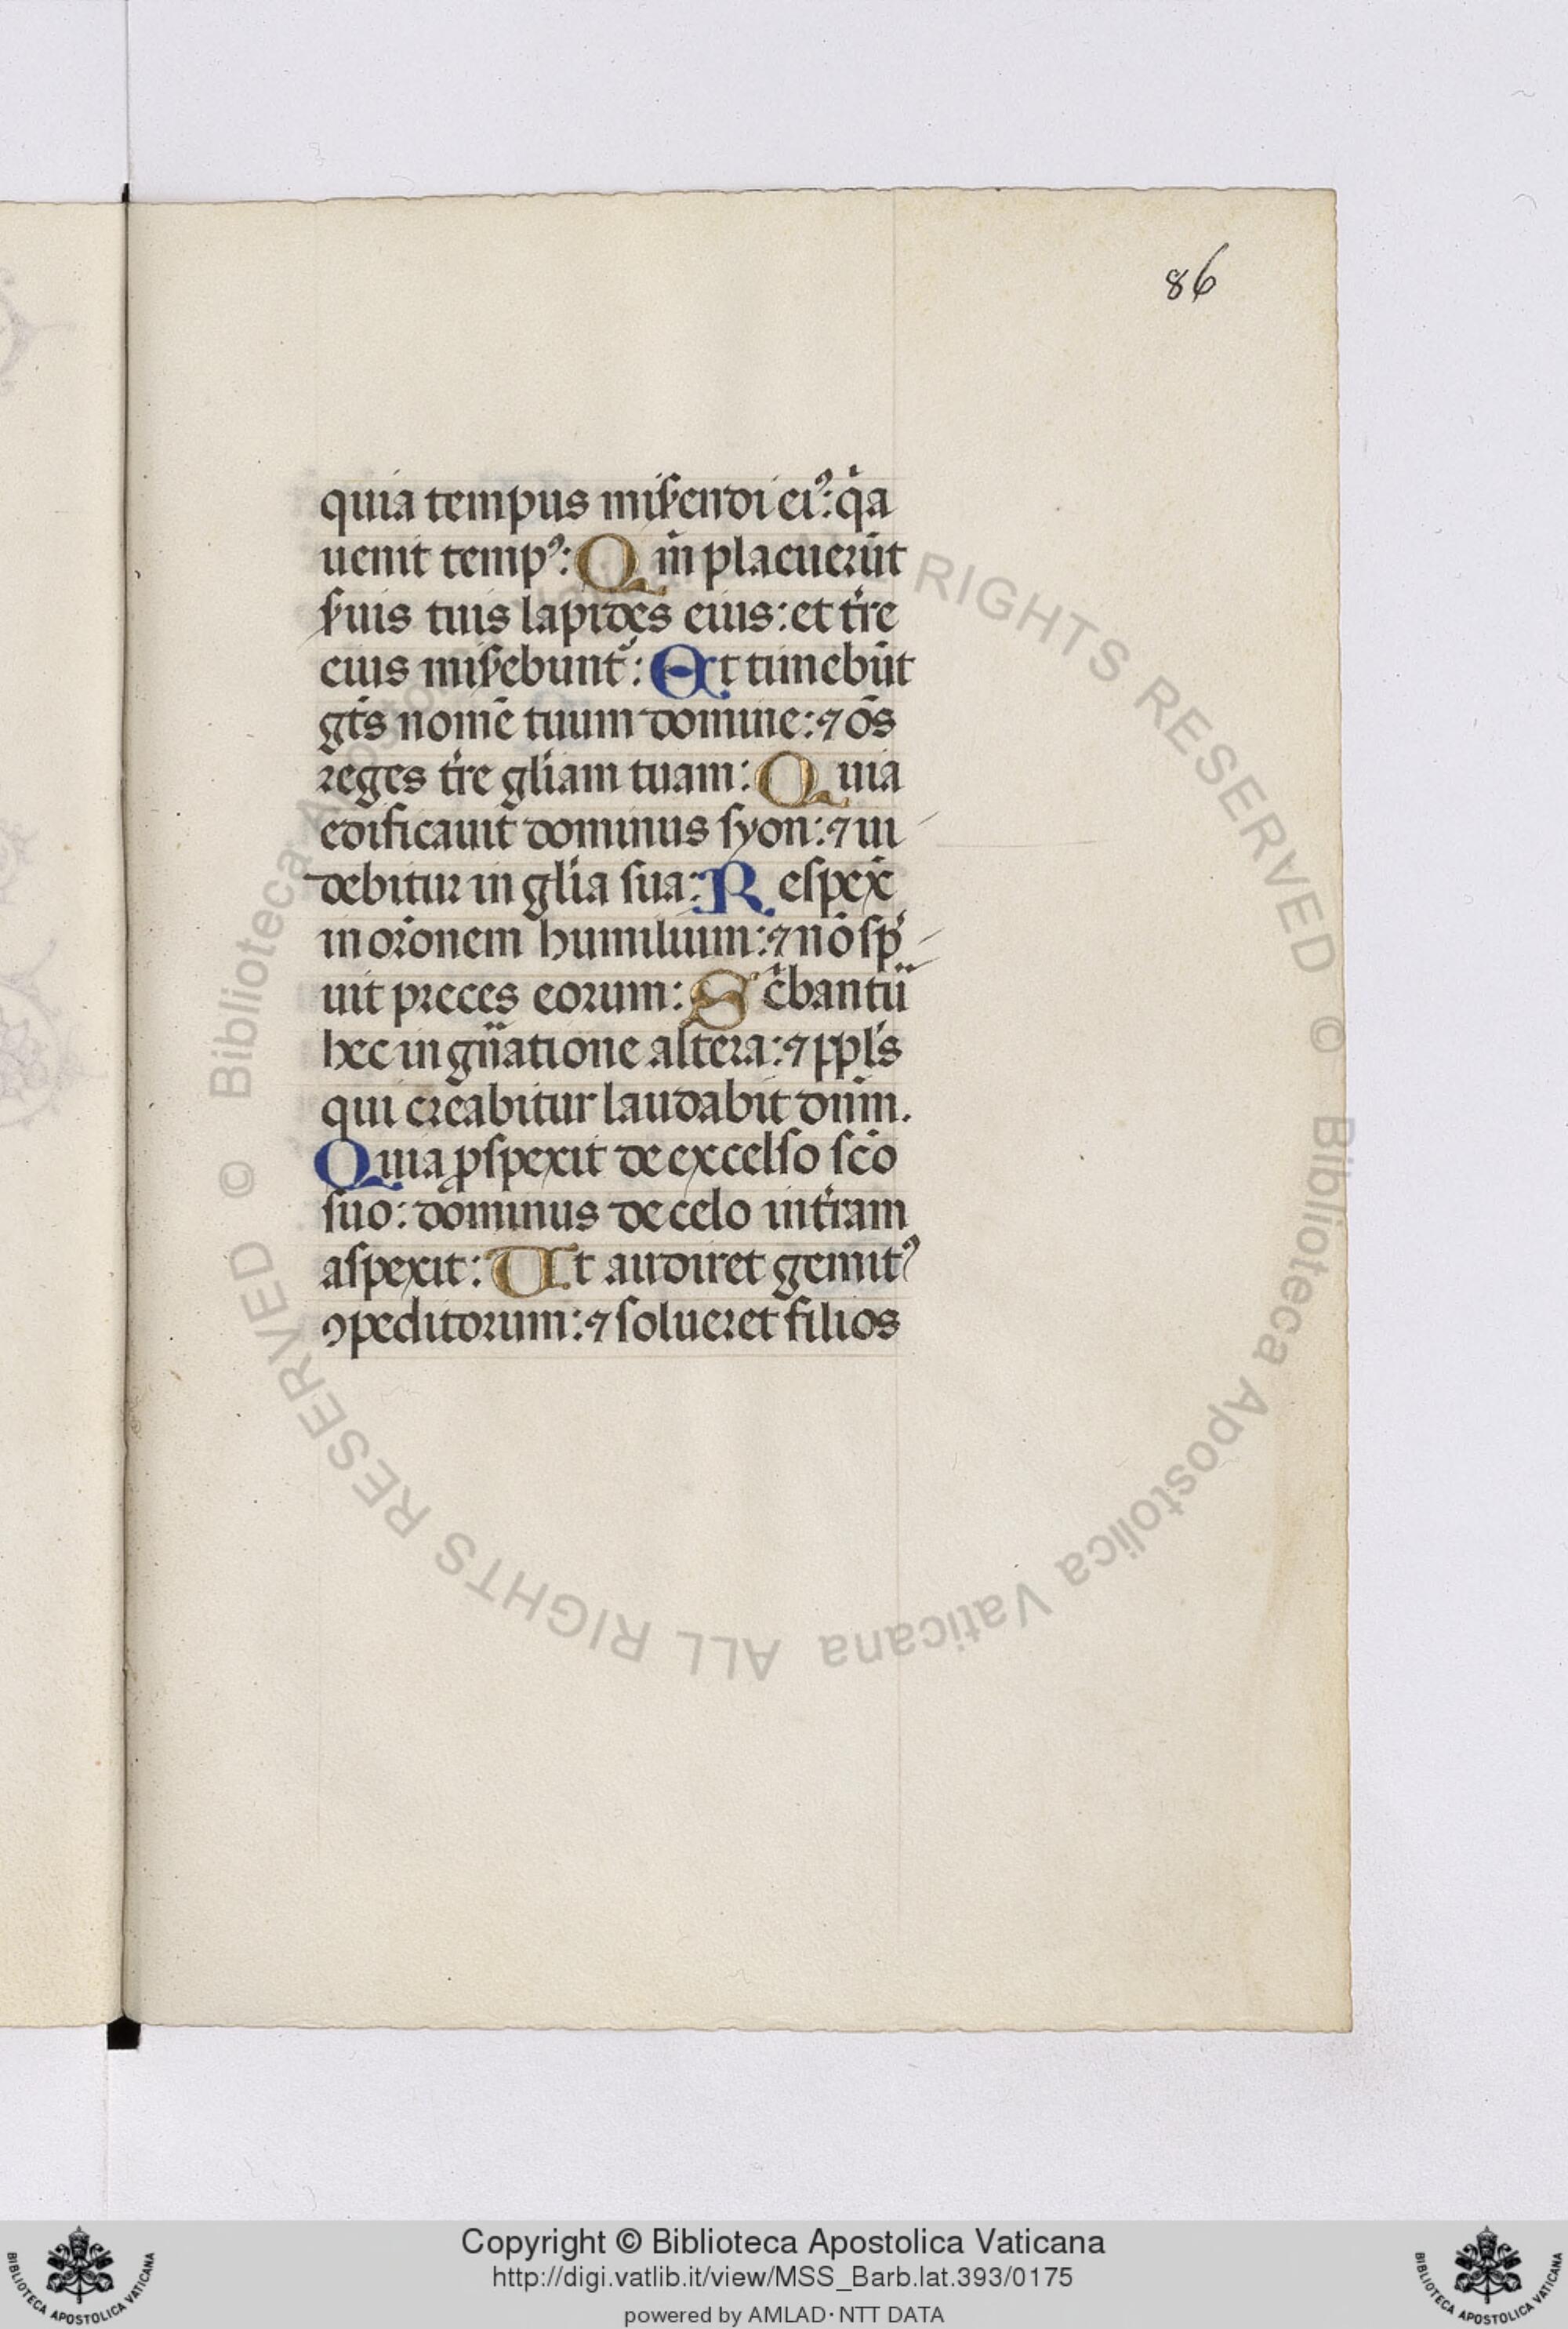 86
quia tempus mis̉endi eiꝰ: qͥa
uenit tempꝰ: Qm̄ placuerūt
s̉uis tuis lapides eius: et t̉re
eius mis̉ebunt᷑: Et timebūt
gēs nomē tuum domine: ⁊ oēs
reges t̉re gl̉iam tuam: Quia
edificauit dominus syon: ⁊ ui
debitur in gl̉ia sua: Respex̉
in or̄onem humilium: ⁊ nō sp̉
uit preces eorum: Sc̉bantur̉
hec in gn̉atione altera: ⁊ ppl̉s
qui creabitur laudabit dn̄m.
Quia ꝓspexit de excelso sc̄o
suo: dominus de celo in t̉ram
aspexit: Ut audiret gemitꝰ
ꝯpeditorum: ⁊ solueret filios
© Biblioteca Apostolica Vaticana ALL RIGHTS RESERVED
Copyright © Biblioteca Apostolica Vaticana
http://digi.vatlib.it/view/MSS_Barb.lat.393/0175
powered by AMLAD·NTT DATA
BIBLIOTECA APOSTOLICA VATICANA
BIBLIOTECA APOSTOLICA VATICANA